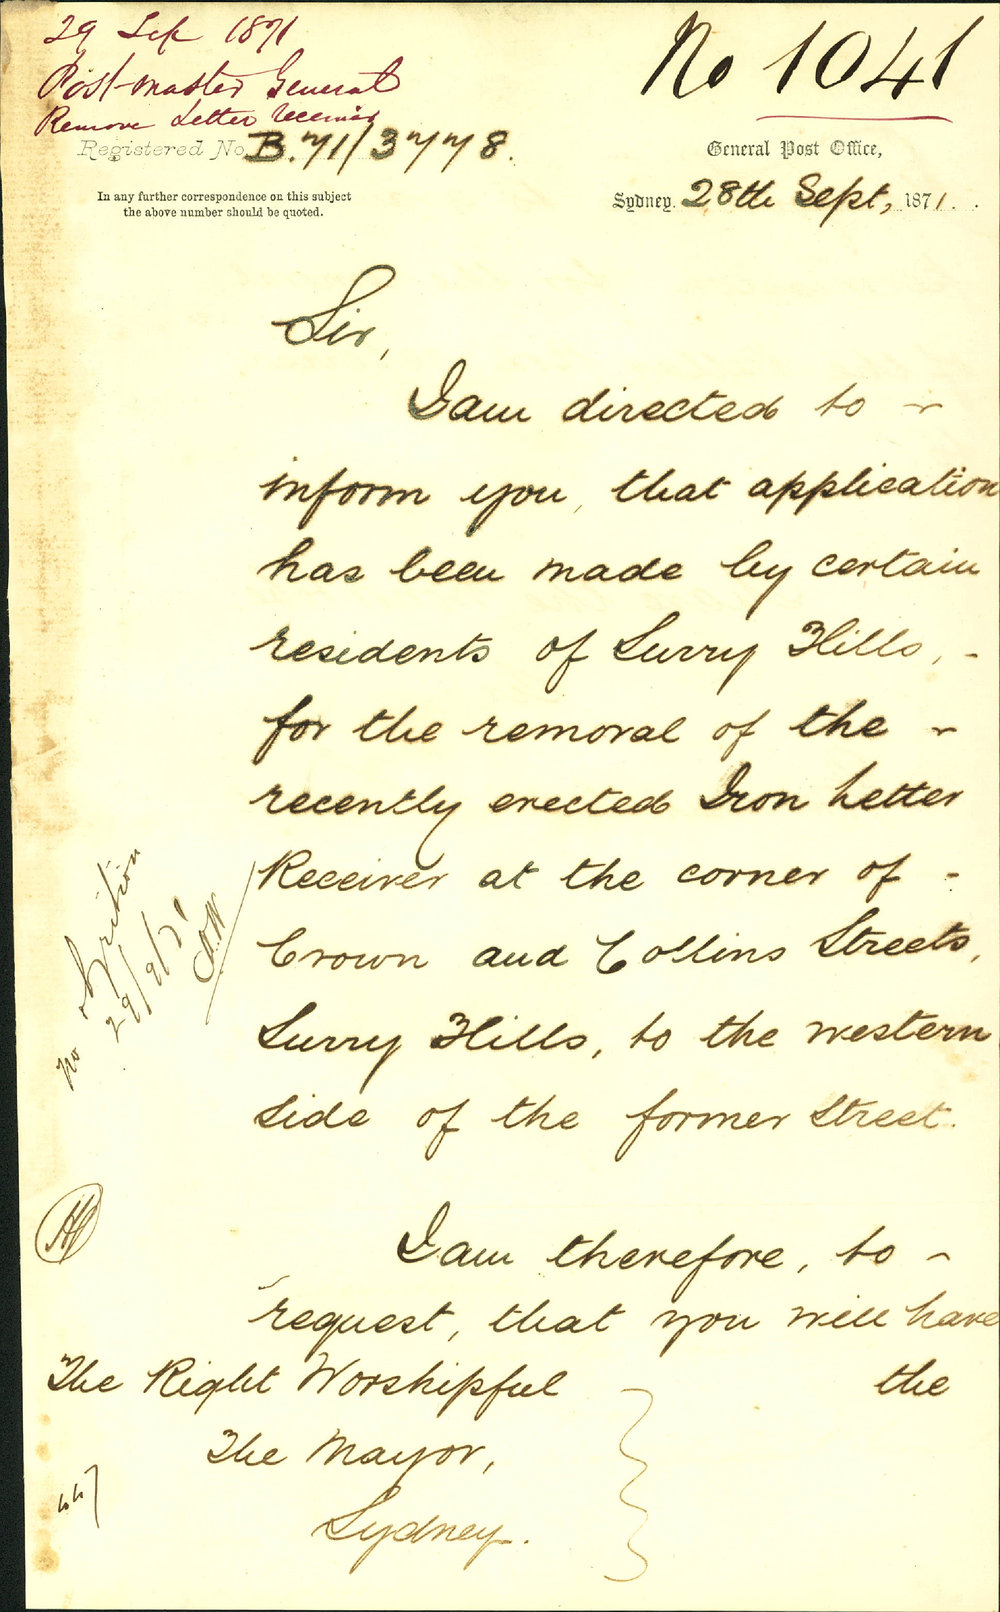 29 Sep 1871
Post-master General
Remove Letter receiver
No 1041
Registered No. B.71/3778.
General Post Office,
In any further correspondence on this subject
the above number should be quoted.
Sydney. 28th Sept, 1871.
Sir,
I am directed to
inform you, that application
has been made by certain
residents of Surry Hills,
for the removal of the
recently erected Iron Letter
Receiver at the corner of
Crown and Collins Streets,
Surry Hills, to the western
side of the former Street.
no objection
29/9/71
I am therefore, to
request, that you will have
the
The Right Worshipful
The Mayor,
Sydney.